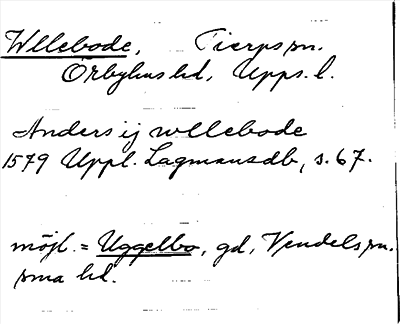 Wllebode, Tierps sn.
Örbyhus hd, Upps. l.
Anders ij wllebode
1579 Uppl. Lagmansdb, s. 67.
möjl. = Uggelbo, gd, Vendels sn.
sma hd.